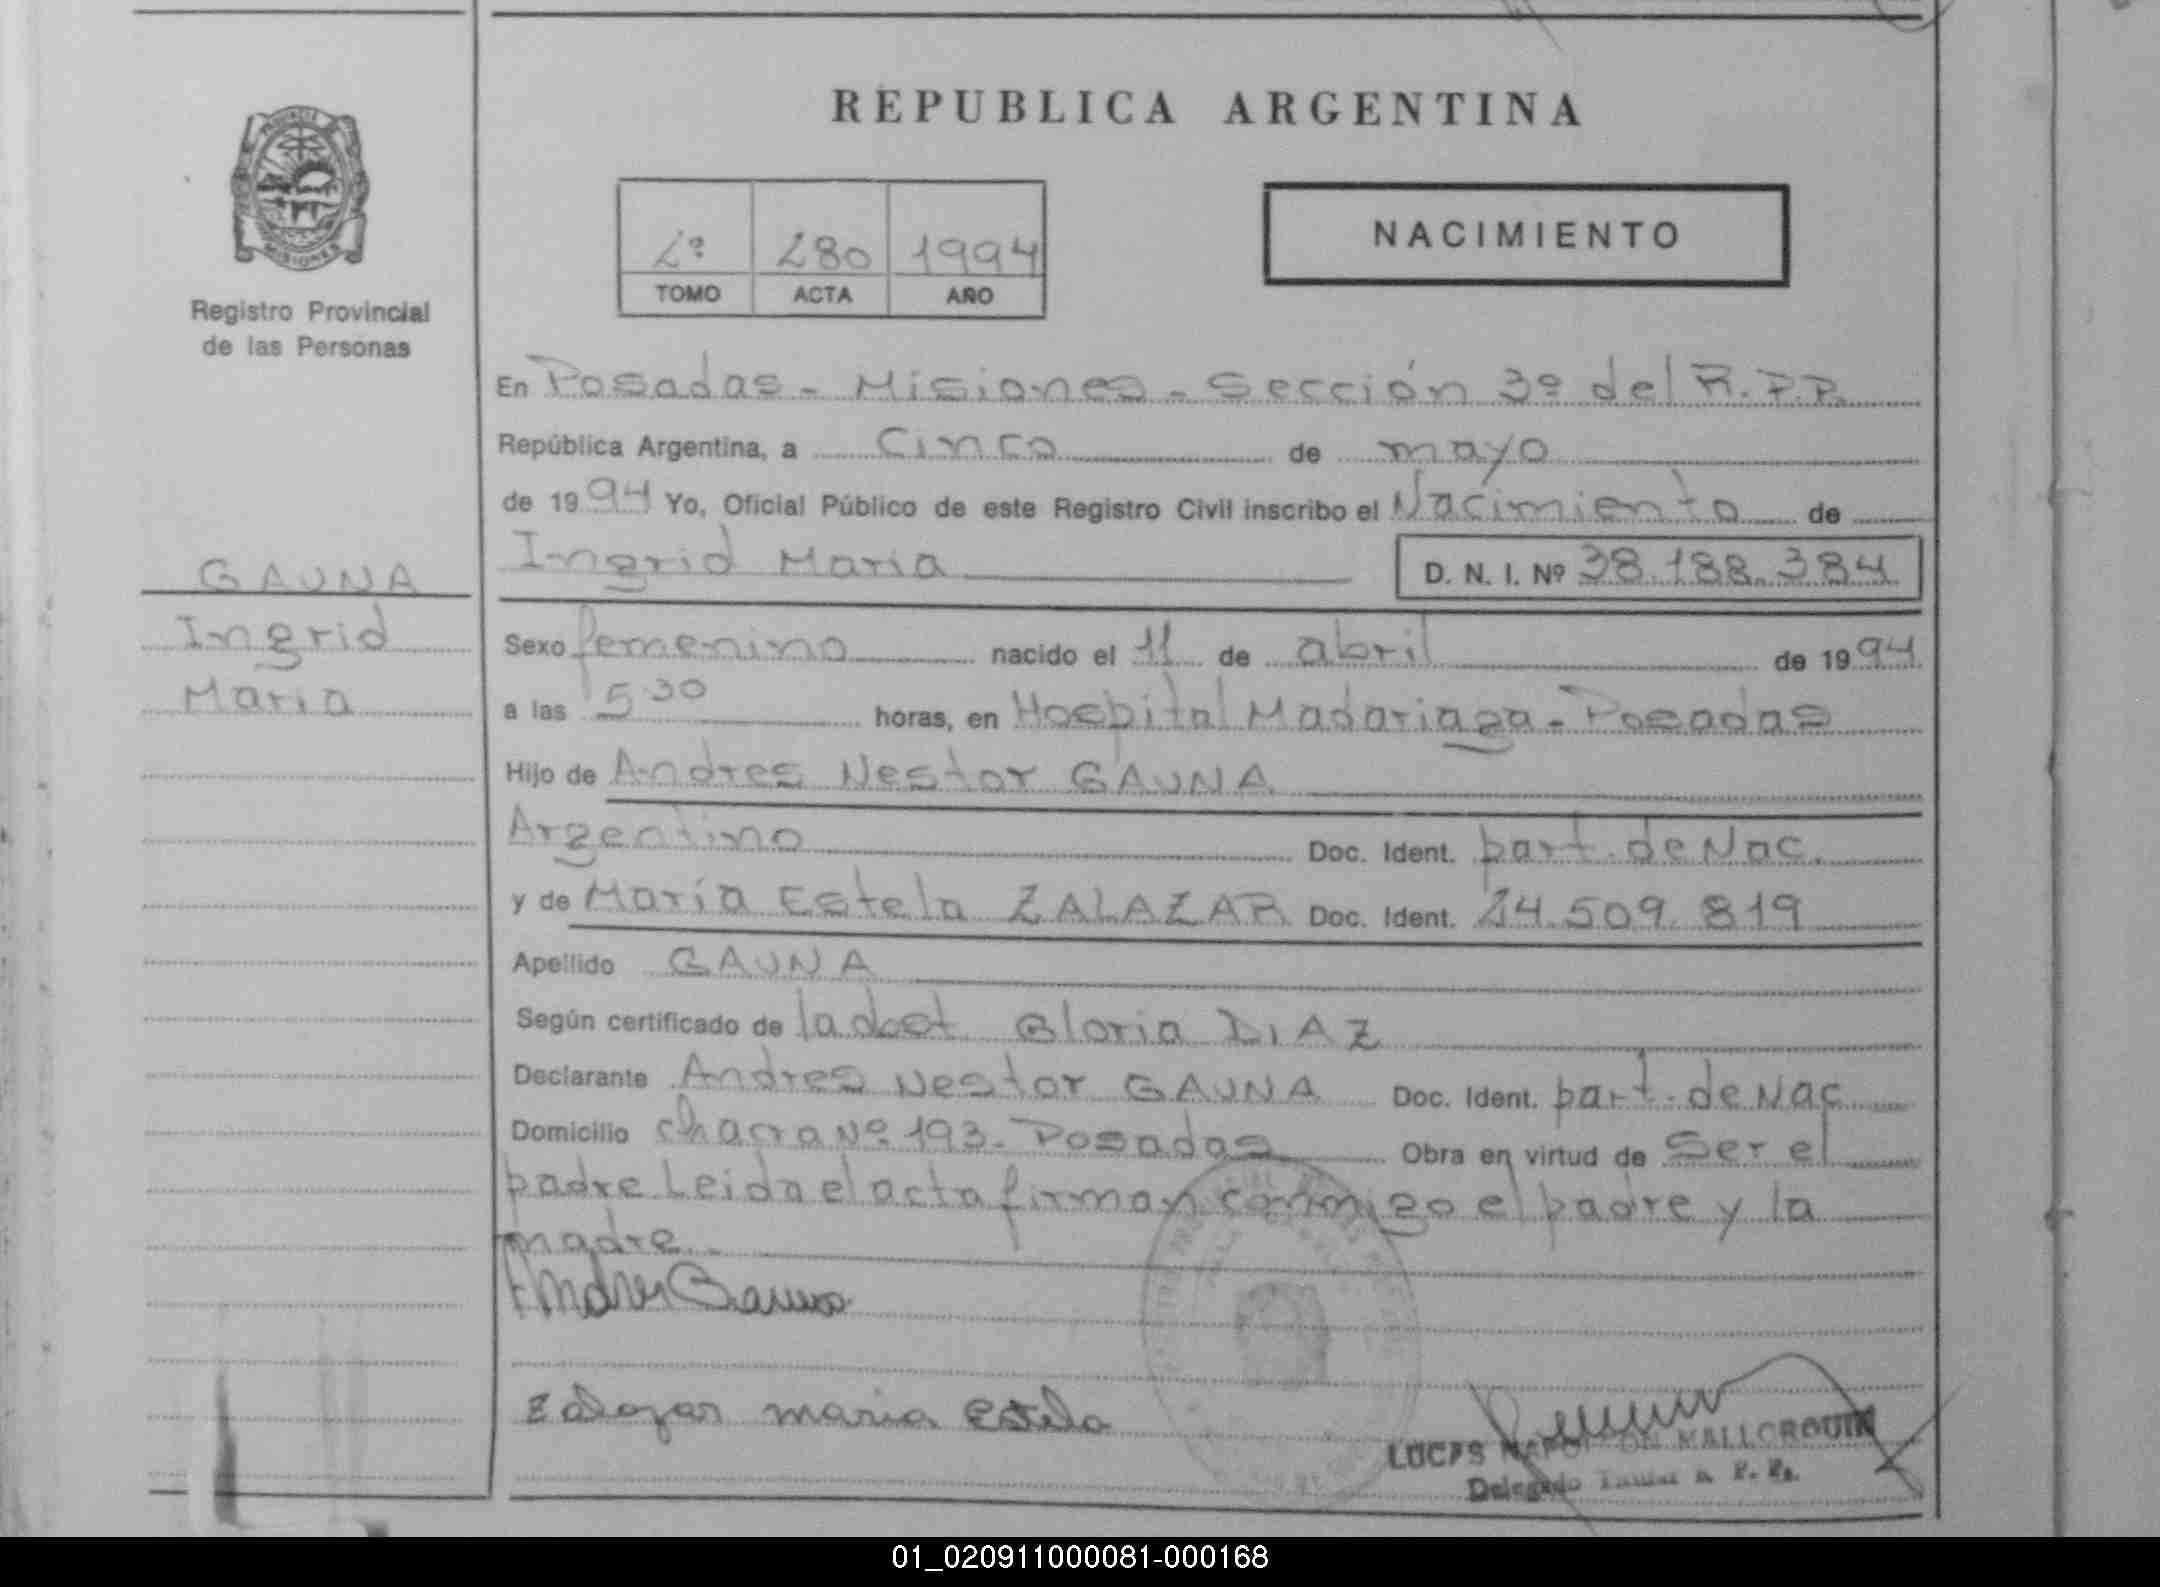 REPUBLICA ARGENTINA
PROVINCIA
MISIONES
Registro Provincial
de las Personas
2º 280 1994
TOMO ACTA AÑO
NACIMIENTO
En Posadas - Misiones - Sección 3º del R.P.P.
República Argentina, a Cinco de mayo
de 1994 Yo, Oficial Público de este Registro Civil inscribo el Nacimiento de
Ingrid Maria D. N. I. Nº 38.188.384
GAUNA
Ingrid
Maria
Sexo femenino nacido el 11 de abril de 1994
a las 5 30 horas, en Hospital Madariaga - Posadas
Hijo de Andres Nestor GAUNA
Argentino Doc. Ident. part. de Nac.
y de María Estela ZALAZAR Doc. Ident. 24.509.819
Apellido GAUNA
Según certificado de la doct Gloria DIAZ
Declarante Andres Nestor GAUNA Doc. Ident. part. de Nac
Domicilio chacra Nº 193 - Posadas Obra en virtud de Ser el
padre Leida el acta firman conmigo el padre y la
madre.
Andres Gauna
Zalazar maria Estela
LUCAS MALLORQUIN
Delegado
01_020911000081-000168